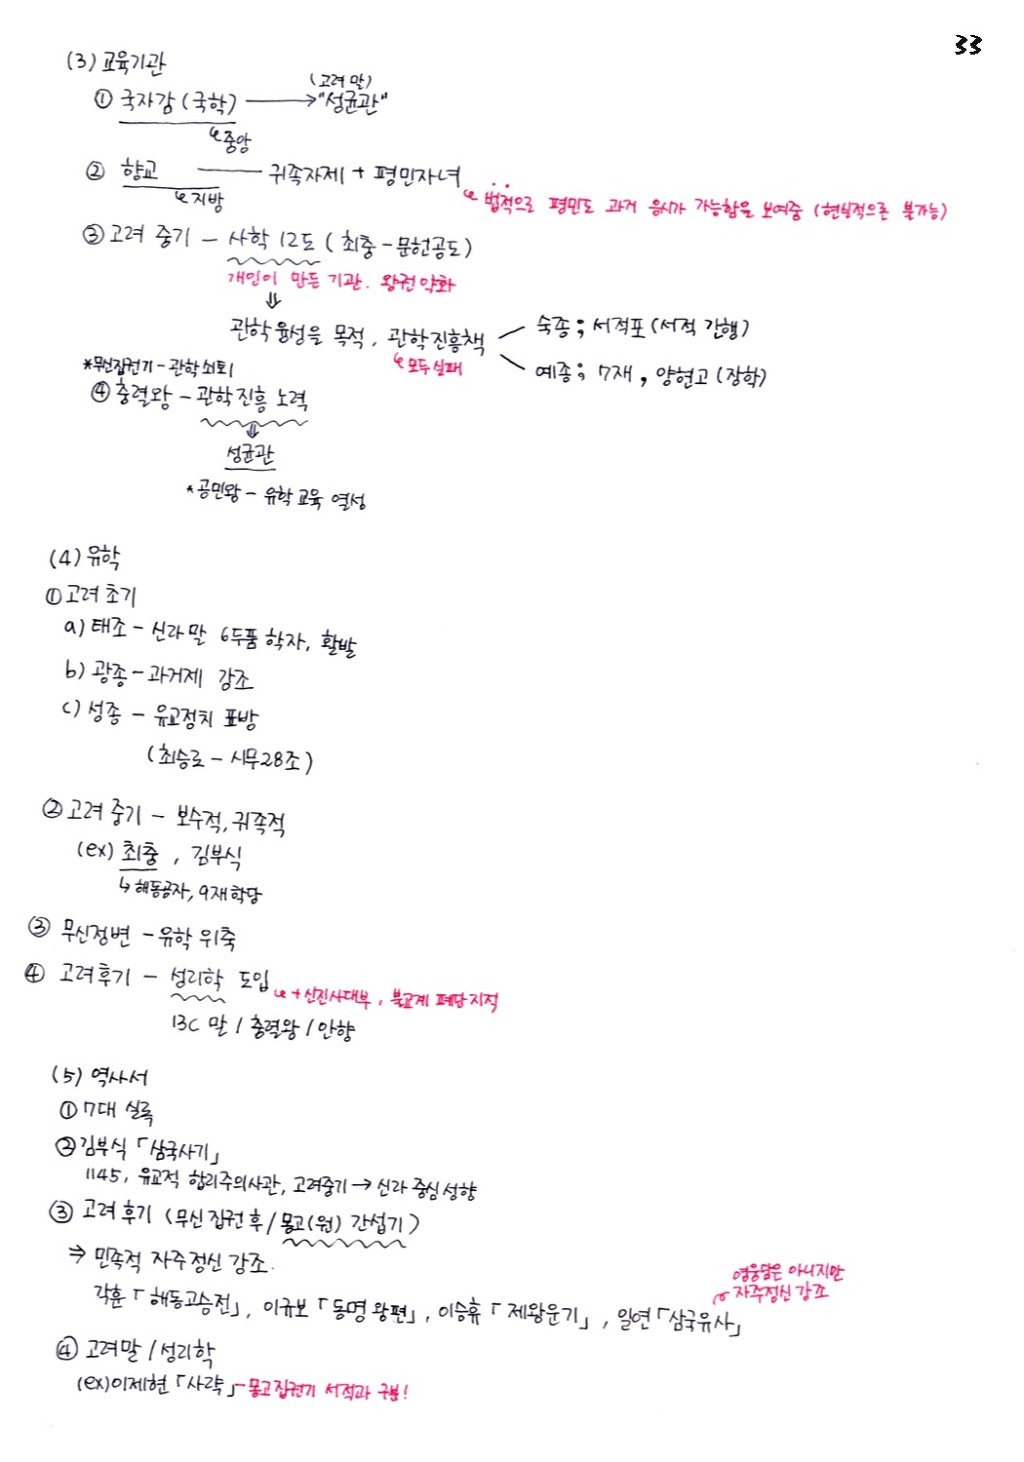 33
(3) 교육기관
(고려 말)
① 국자감 (국학) → "성균관"
중앙
② 향교 — 귀족자제 + 평민자녀
지방
법적으로 평민도 과거 응시가 가능함을 보여줌 (현실적으론 불가능)
③ 고려 중기 – 사학 12도 ( 최충 – 문헌공도 )
개인이 만든 기관. 왕권 약화
⇓
관학 육성을 목적, 관학진흥책
숙종 ; 서적포 (서적 간행)
모두 실패
예종 ; 7재 , 양현고 (장학)
*무신집권기 – 관학 쇠퇴
④ 충렬왕 – 관학 진흥 노력
⇓
성균관
*공민왕 – 유학 교육 열성
(4) 유학
① 고려 초기
a) 태조 – 신라 말 6두품 학자, 활발
b) 광종 – 과거제 강조
c) 성종 – 유교정치 표방
(최승로 – 시무28조)
② 고려 중기 – 보수적, 귀족적
(ex) 최충 , 김부식
↳ 해동공자, 9재 학당
③ 무신정변 – 유학 위축
④ 고려 후기 – 성리학 도입
+ 신진사대부 , 불교계 폐단 지적
13C 말 / 충렬왕 / 안향
(5) 역사서
① 7대 실록
② 김부식 「삼국사기」
1145, 유교적 합리주의사관, 고려중기 → 신라 중심 성향
③ 고려 후기 (무신 집권 후 / 몽고(원) 간섭기)
⇒ 민족적 자주정신 강조.
영웅담은 아니지만
자주정신 강조
각훈 「해동고승전」, 이규보 「동명왕편」, 이승휴 「제왕운기」 , 일연 「삼국유사」
④ 고려말 / 성리학
(ex) 이제현 「사략」 – 몽고 집권기 서적과 구분!